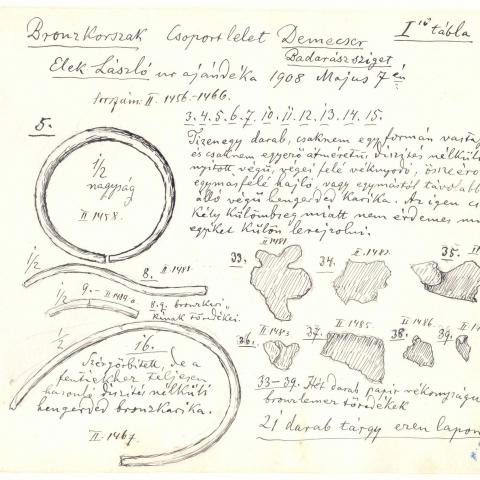 Bronzkorszak Csoport lelet Demecser I ső tábla
Badarászsziget
Elek László ur ajándéka 1908 Május 7 én
lorszám: II. 1456–1466.
3. 4. 5. 6. 7. 10. 11. 12. 13. 14. 15.
5.
Tizenegy darab, csaknem egy formán vastag
és csaknem egyerő átméretű, díszítés nélküli
nyitott végű, végei felé véknyodó, össze érő
egymásfelé hajló vagy egymástól távolabb
álló végű hengerded karika. Az igen cs
kély külömbség miatt nem érdemes mi
egyiket külön lerajzolni.
1/2
nagyság
II. 1458.
1/2
8. II. 1481
9. – II. 1484 a
8. 9. bronzkari
kának töredékei.
1/2
16.
Szétgörbített, de a
fentiekhez teljesen
hasonló díszítés nélküli
hengerded bronzkarika.
II. 1467.
33. II. 1481
34. II. 1482.
35. II
36. II. 1483.
37. II. 1485.
38. II. 1486.
39. II
33–39. Hét darab papir vékonyságu
bronzlemez töredékek
21 darab tárgy ezen lapon